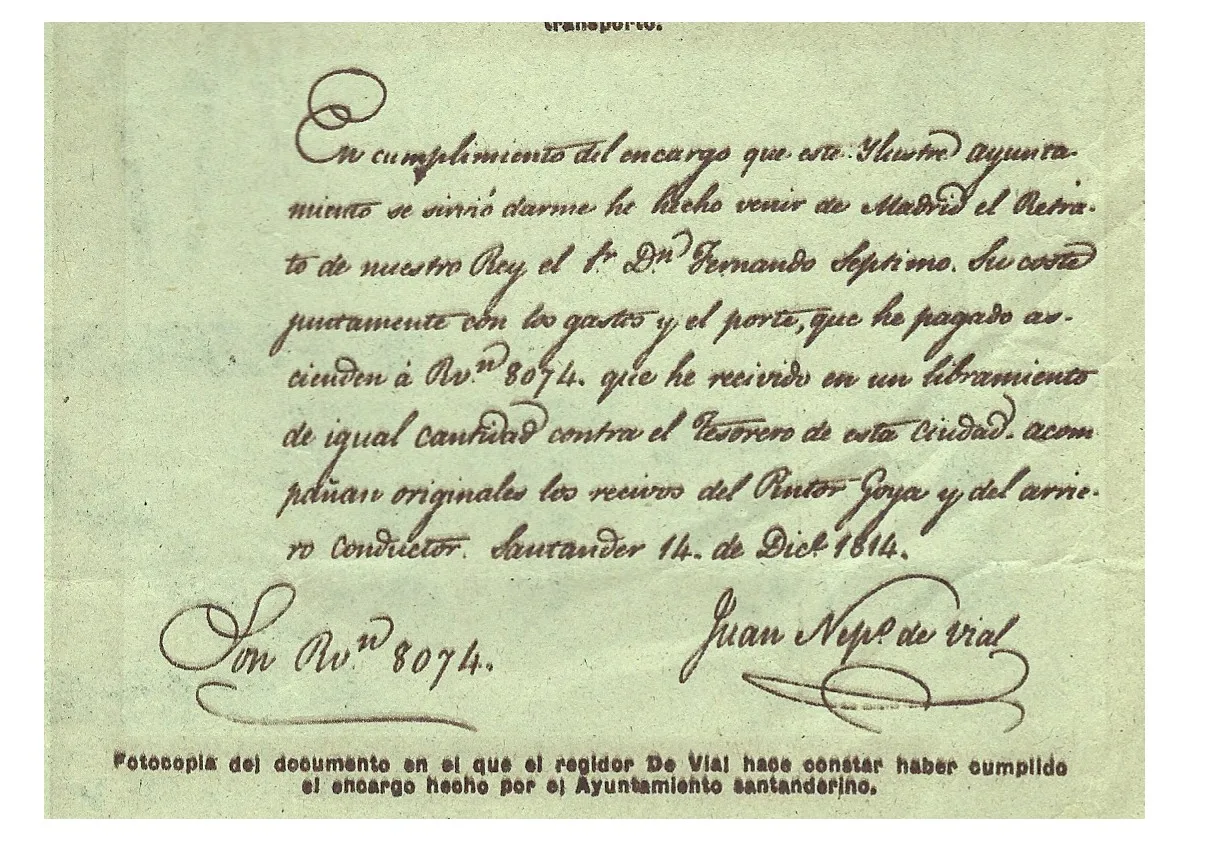 transporto.
En cumplimiento del encargo que este Ylustre ayunta-
miento se sirvió darme he hecho venir de Madrid el Retra-
to de nuestro Rey el Sr. Dn. Fernando Septimo. Su coste
juntamente con los gastos y el porte, que he pagado as-
cienden á Rv.n 8074. que he recivido en un libramiento
de igual cantidad contra el Tesorero de esta Ciudad. acom
pañan originales los recivos del Pintor Goya y del arrie-
ro Conductor. Santander 14. de Dice. 1814.
Juan Nepo. de Vial
Son Rv.n 8074.
Fotocopia del documento en el que el regidor De Vial hace constar haber cumplido
el encargo hecho por el Ayuntamiento santanderino.